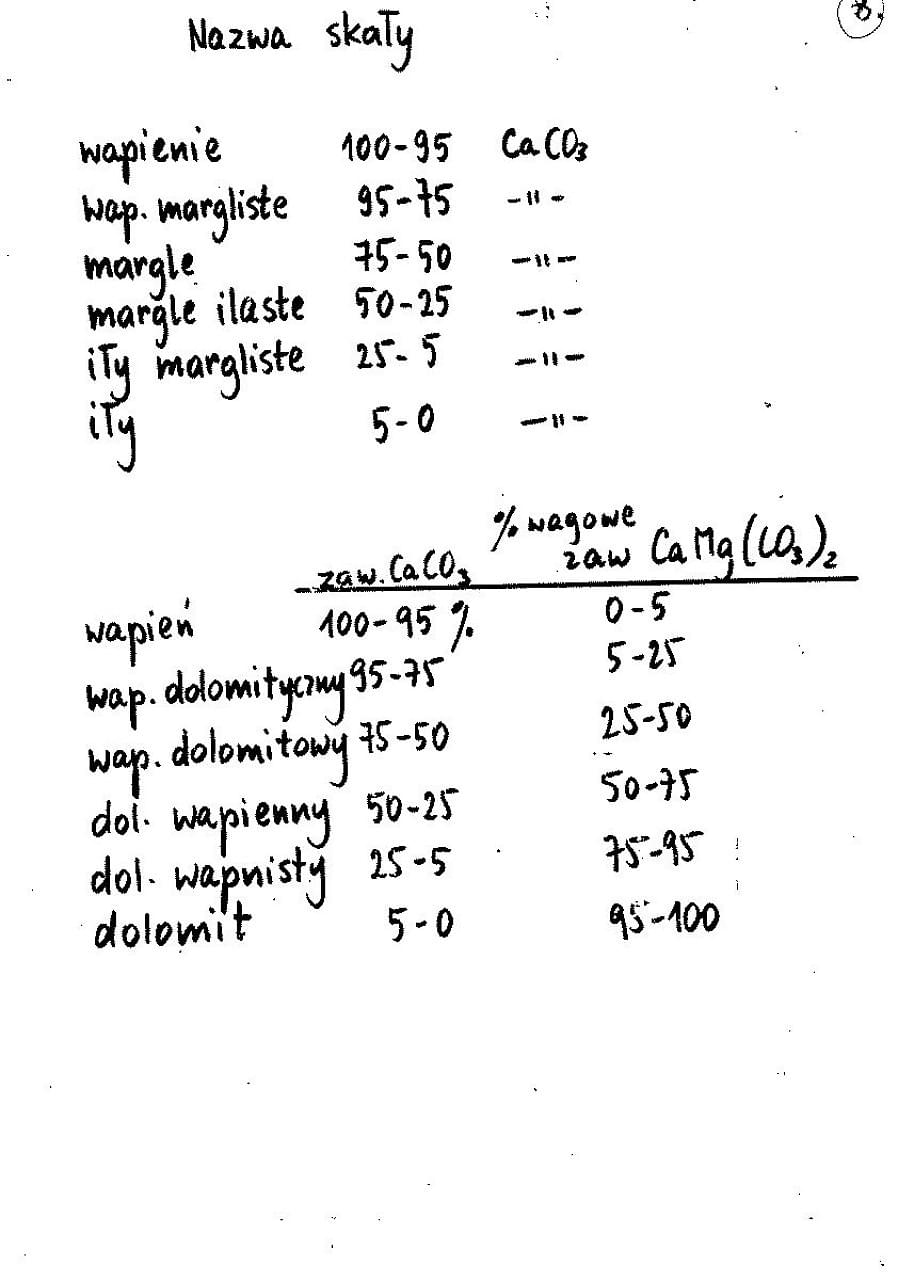 8.
Nazwa skały
wapienie 100-95 CaCO₃
wap. margliste 95-75 -"-
margle 75-50 -"-
margle ilaste 50-25 -"-
iły margliste 25-5 -"-
iły 5-0 -"-
% wagowe
zaw. CaCO₃ zaw CaMg(CO₃)₂
wapień 100-95 % 0-5
wap. dolomityczny 95-75 5-25
wap. dolomitowy 75-50 25-50
dol. wapienny 50-25 50-75
dol. wapnisty 25-5 75-95
dolomit 5-0 95-100